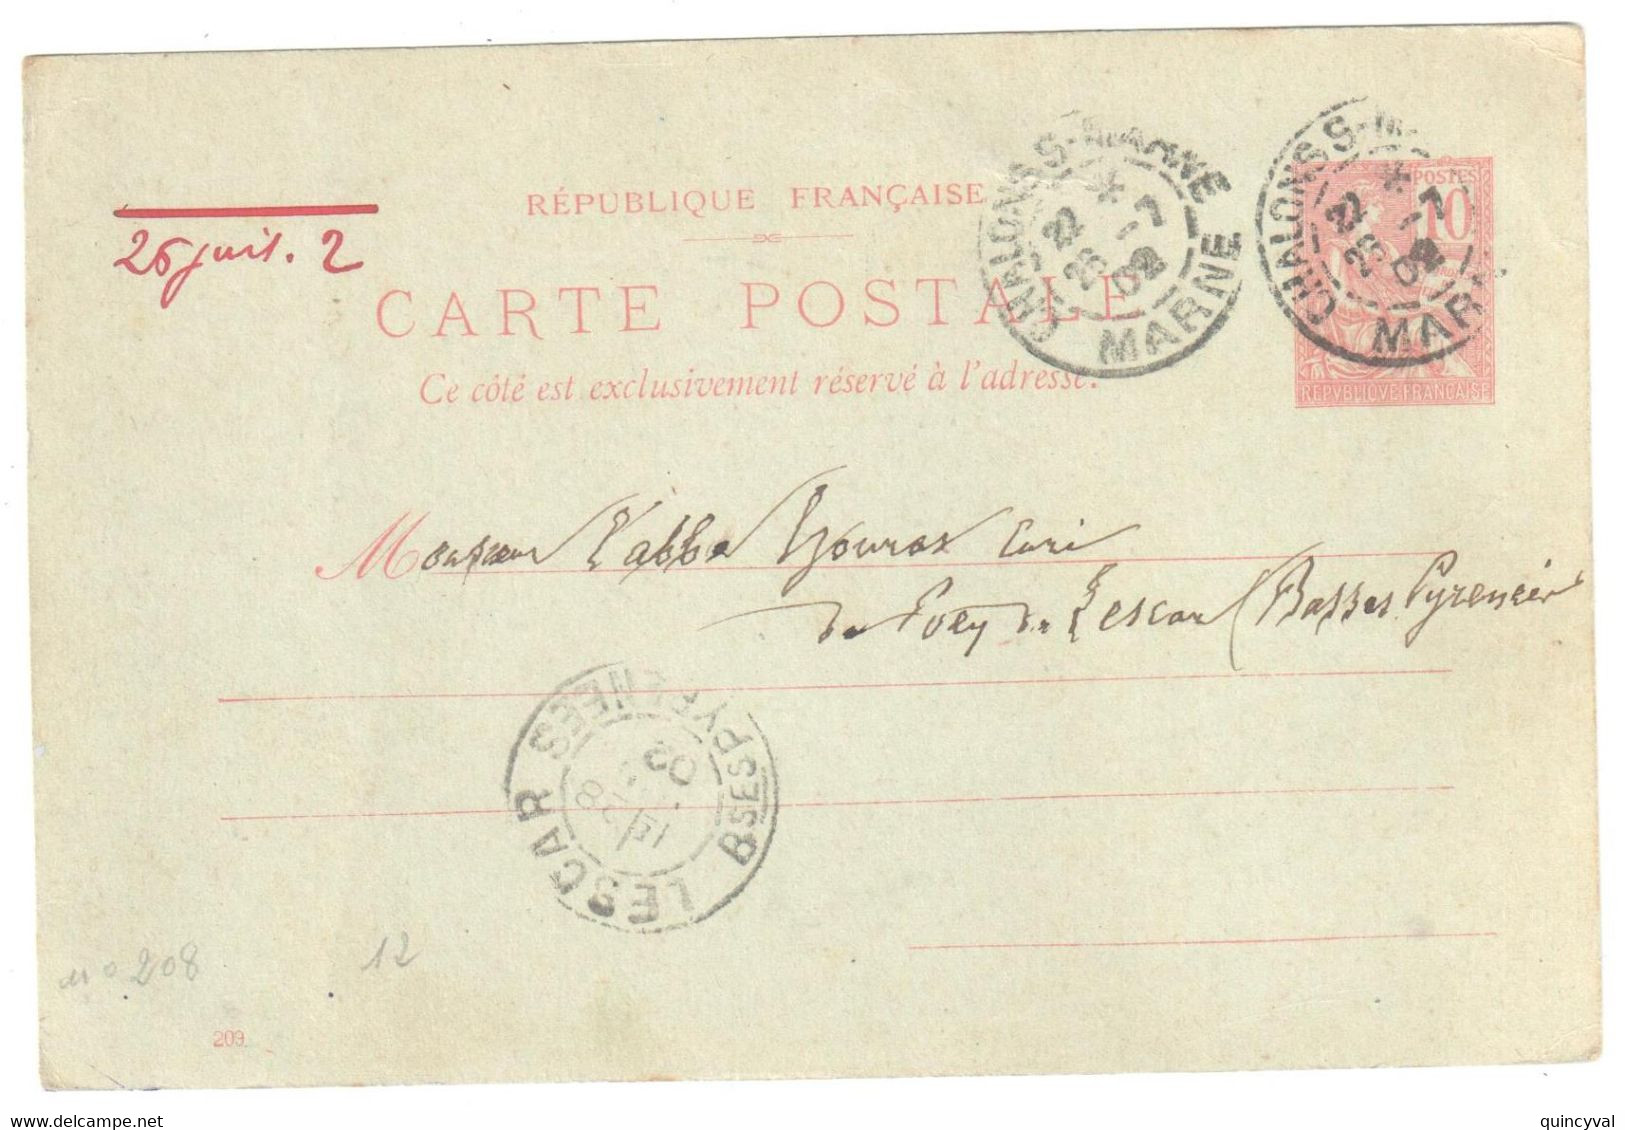 RÉPUBLIQUE FRANÇAISE
26 juil. 2
CARTE POSTALE
Ce côté est exclusivement réservé à l'adresse.
CHALONS-S-MARNE
22 *
26 -7
02
MARNE
CHALONS-S-M
22 *
26 -7
02
MAR
POSTES
10
REPVBLIQVE FRANÇAISE
Monsieur l'abbé Curé
de Poey de Lescar (Basses Pyrénées
LESCAR
BSES PYRENEES
02
n° 208
12
209
www.delcampe.net
quincyval